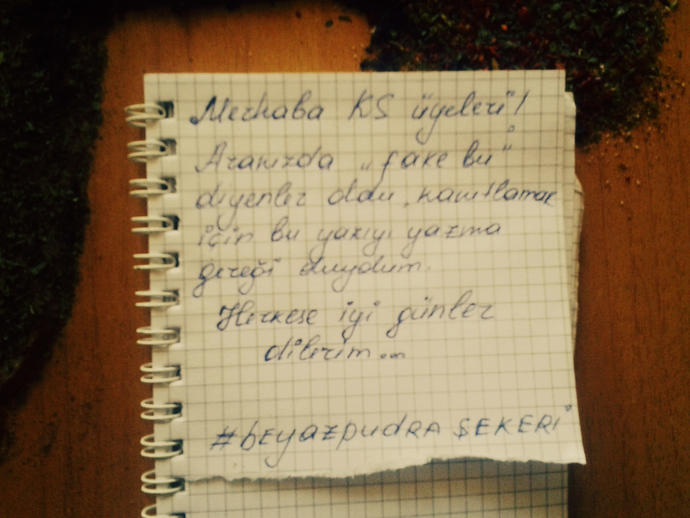 Merhaba KS üyeleri!
Aranızda „fake bu"
diyenler oldu, kanıtlamak
için bu yazıyı yazma
gereği duydum.
Herkese iyi günler
dilerim...
#bEyazpudRA ŞEKERİ